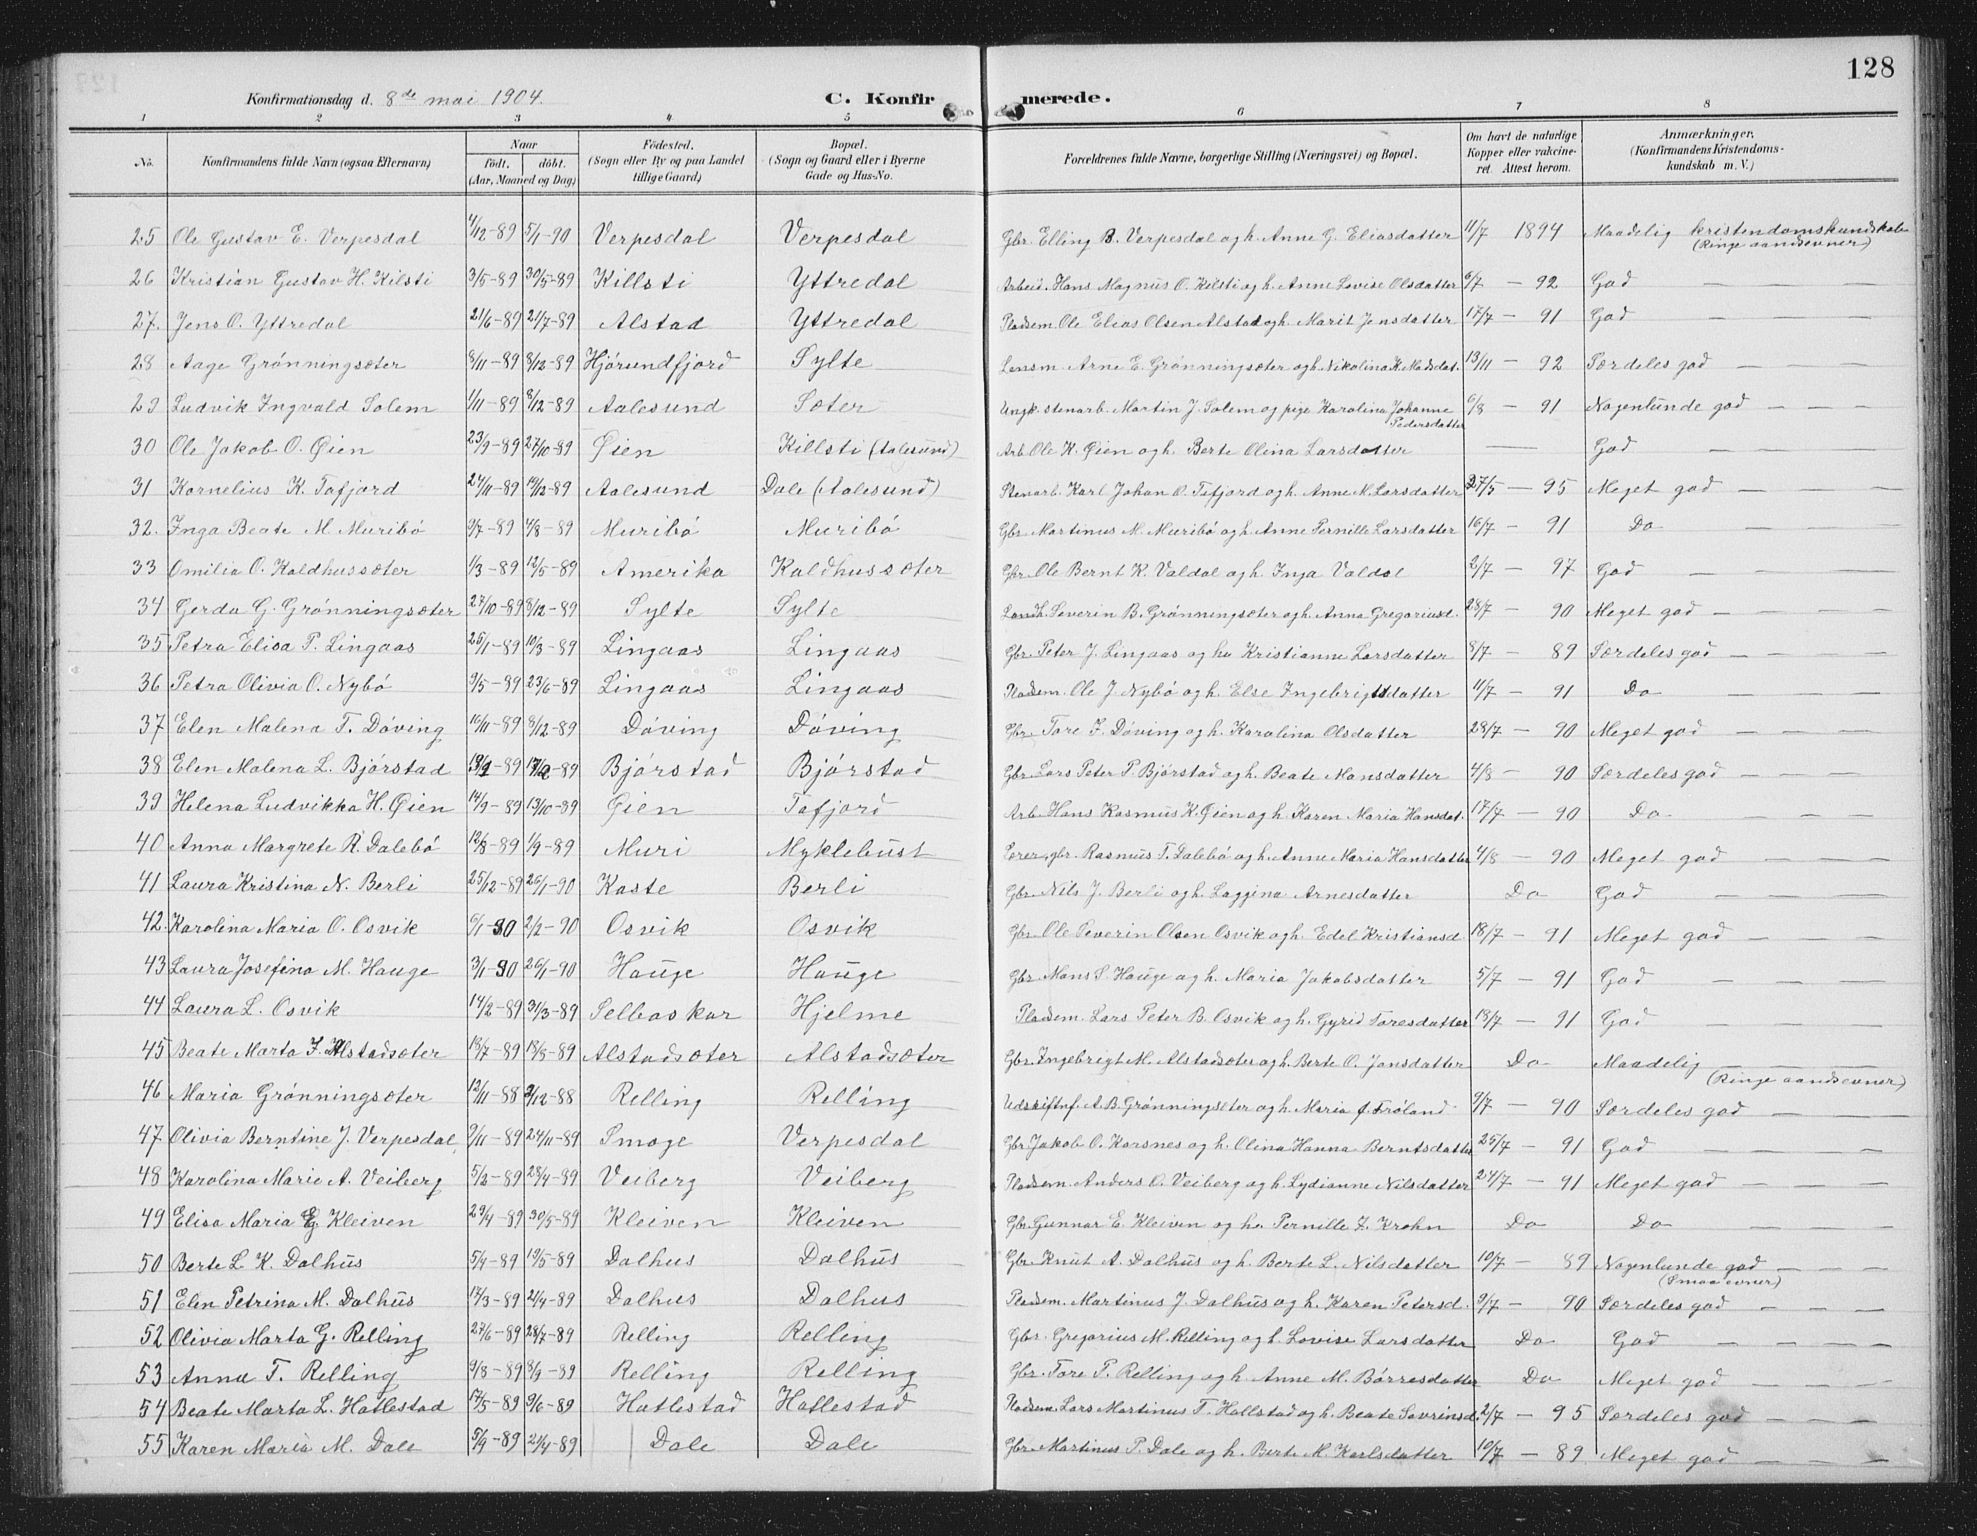 128
Konfirmationsdag d. 8de mai 1904. C. Konfirmerede.
1 2 3 4 5 6 7 8
No. Konfirmandens fulde Navn (ogsaa Efternavn) Naar født. døbt. (Aar, Maaned og Dag) Fødested. (Sogn eller By og paa Landet tillige Gaard) Bopæl. (Sogn og Gaard eller i Byerne Gade og Hus-No. Forældrenes fulde Navne, borgerlige Stilling (Næringsvei) og Bopæl. Om havt de naturlige Kopper eller vakcineret. Attest herom. Anmærkninger, (Konfirmandens Kristendomskundskab m. V.)
25 Ole Gustav E. Verpesdal 4/12-89 5/1-90 Verpesdal Verpesdal Gbr. Elling B. Verpesdal og h. Anne G. Eliasdatter 11/7 1894 Maadelig kristendomskundskab
(Ringe aandsevner)
26 Kristian Gustav H. Kilsti 3/5-89 30/5-89 Killsti Yttredal Arbeid. Hans Magnus O. Kilsti og h. Anne Lovise Olsdatter 6/7 - 92 God — —
27. Jens O. Yttredal 21/6-89 21/7-89 Alstad Yttredal Pladsem. Ole Elias Olsen Alstad og h. Marit Jensdatter 17/7 - 91 God — —
28 Aage Grønningsæter 8/11-89 8/12-89 Hjørundfjord Sylte Lensm. Arne E. Grønningsæter og h. Nikolina K. Madsdat. 13/11 - 92 Særdeles god — — —
29 Ludvik Ingvald Solem 1/11-89 8/12-89 Aalesund Sæter Ungk. stenarb. Martin J. Solem og pige Karolina Johanne Pedersdatter 6/8 - 91 Nogenlunde god — — —
30 Ole Jakob O. Øien 23/9-89 27/10-89 Øien Killsti (Aalesund) Arb. Ole K. Øien og h. Berte Olina Larsdatter — God — — —
31 Kornelius K. Tafjord 24/11-89 19/12-89 Aalesund Dale (Aalesund) Stenarb. Karl Johan O. Tafjord og h. Anne M. Larsdatter 27/5 - 95 Meget god — — —
32. Inga Beate M. Muribø 9/7-89 4/8-89 Muribø Muribø Gbr. Martinus M. Muribø og h. Anne Pernille Larsdatter 16/7 - 91 Do — —
33 Omilia O. Kaldhussæter 1/3-89 12/5-89 Amerika Kaldhussæter Gbr. Ole Bernt K. Valdal og h. Inga Valdal 2/7 - 97 God — — —
34 Gerda G. Grønningsæter 27/10-89 8/12-89 Sylte Sylte Landh. Severin B. Grønningsæter og h. Anna Gregoriusd. 28/7 - 90 Meget god — — —
35 Petra Elisa P. Lingaas 25/1-89 10/3-89 Lingaas Lingaas Gbr. Peter J. Lingaas og hu Kristianne Larsdatter 8/7 - 89 Særdeles god — — —
36 Petra Olivia O. Nybø 9/5-89 23/6-89 Lingaas Lingaas Pladsem. Ole J. Nybø og h. Else Ingebrigtsdatter 11/7 - 91 Do — — —
37 Elen Malena T. Døving 16/11-89 8/12-89 Døving Døving Gbr. Tore I. Døving og h. Karolina Olsdatter 28/7 - 90 Meget god — — —
38 Elen Malena L. Bjørstad -89 -89 Bjørstad Bjørstad Gbr. Lars Peter P. Bjørstad og h. Beate Monsdatter 4/8 - 90 Særdeles god — — —
39 Helena Ludvikka H. Øien 14/9-89 13/10-89 Øien Tafjord Arb. Hans Rasmus K. Øien og h. Karen Maria Hansdat. 17/7 - 90 Do — — —
40 Anna Margrete R. Dalebø 12/8-89 1/9-89 Muri Myklebust Forer. gbr. Rasmus T. Dalebø og h. Anne Maria Hansdatter 4/8 - 90 Meget god — — —
41 Laura Kristina N. Berli 25/12-89 26/1-90 Kaste Berli Gbr. Nils J. Berli og h. Laggina Arnesdatter Do God — — —
42. Karolina Maria O. Osvik 6/1-90 2/2-90 Osvik Osvik Gbr. Ole Severin Olsen Osvik og h. Edel Kristiansd. 18/7 - 91 Meget god — — —
43 Laura Josefina M. Hauge 3/1-90 26/1-90 Hauge Hauge Gbr. Mons S. Hauge og h. Maria Jakobsdatter 5/7 - 91 God — — —
44 Laura L. Osvik 14/2-89 31/3-89 Selboskar Hjelme Pladsem. Lars Peter B. Osvik og h. Gyrid Toresdatter 18/7 - 91 God — — —
45 Beate Marta I. Alstadsæter 18/7-89 18/8-89 Alstadsæter Alstadsæter Gbr. Ingebrigt M. Alstadsæter og h. Berte O. Jonsdatter Do Maadelig — — —
(Ringe aandsevner)
46 Maria Grønningsæter 12/11-88 /12-88 Relling Relling Udskiftnf. A. B. Grønningsæter og h. Maria f. Frøland 9/7 - 90 Særdeles god — — —
47 Olivia Berntine J. Verpesdal 9/11-89 24/11-89 Smoge Verpesdal Gbr. Jakob O. Korsnes og h. Olina Hanna Berntsdatter 25/7 - 91 God — — —
48 Karolina Marie A. Veiberg 5/3-89 28/4-89 Veiberg Veiberg Pladsem. Anders O. Veiberg og h. Lydianne Nilsdatter 24/7 - 91 Meget god — — —
49 Elisa Maria G. Kleiven 29/4-89 30/5-89 Kleiven Kleiven Gbr. Gunnar E. Kleiven og hu. Pernille Z. Krohn Do Do — — —
50 Berte L. K. Dalhus 5/4-89 19/5-89 Dalhus Dalhus Gbr. Knut A. Dalhus og h. Berte L. Nilsdatter 10/7 - 89 Nogenlunde god — — —
(Smaa evner)
51 Elen Petrina M. Dalhus 17/3-89 21/4-89 Dalhus Dalhus Pladsem. Martinus J. Dalhus og h. Karen Petersd. 9/7 - 90 Særdeles god — — —
52 Olivia Marta G. Relling 27/6-89 28/7-89 Relling Relling Gbr. Gregorius M. Relling og h. Lovise Larsdatter Do God — — —
53 Anna T. Relling 9/8-89 8/9-89 Relling Relling Gbr. Tore P. Relling og h. Anne M. Børresdatter Do Meget god — — —
54 Beate Marta L. Hatlestad 17/5-89 9/6-89 Hatlestad Hatlestad Pladsem. Lars Martinus T. Hallstad og h. Beate Sevrinsd. 2/7 - 95 Særdeles god — — —
55 Karen Maria M. Dale 5/4-89 21/4-89 Dale Dale Gbr. Martinus P. Dale og h. Berte M. Karlsdatter 10/7 - 89 Meget god — — —